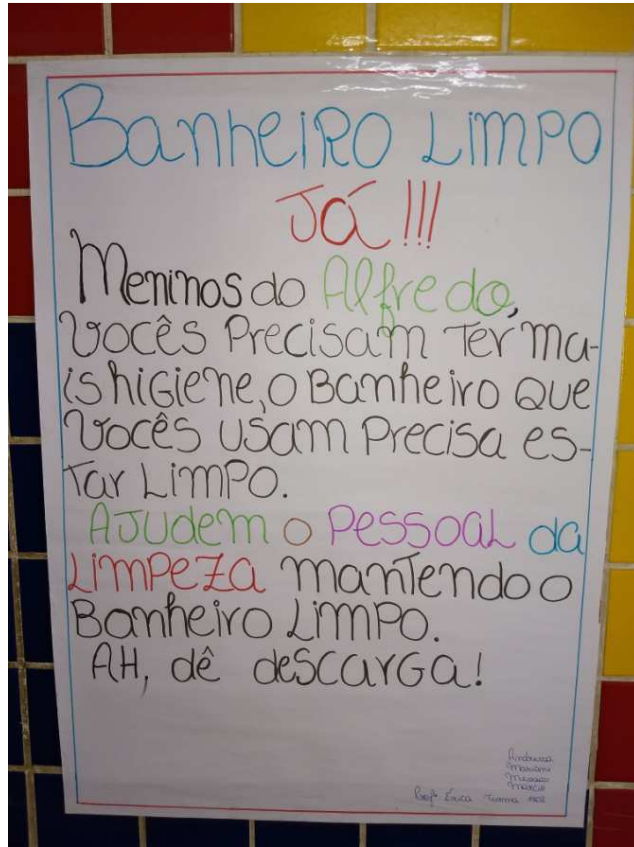 BanheiRO LimPO
Já !!!
Meninos do Alfredo,
Vocês Precisam Ter ma-
is higiene, o Banheiro que
Vocês usam Precisa es-
Tar LimPO.
AJudem o Pessoal da
LimPeza mantendo o
Banheiro LimPo.
AH, dê descarga!
Profª Érica Turma